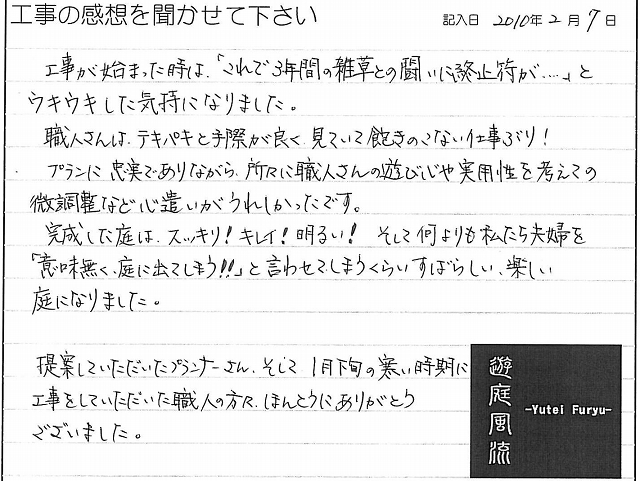 工事の感想を聞かせて下さい
記入日 2010年2月7日
工事が始まった時は、「これで3年間の雑草との闘いに終止符が....」と
ウキウキした気持になりました。
職人さんは、テキパキと手際が良く、見ていて飽きのこない仕事ぶり!
プランに忠実でありながら、所々に職人さんの遊び心や実用性を考えての
微調整など心遣いがうれしかったです。
完成した庭は、スッキリ!キレイ!明るい! そして何よりも私たち夫婦を
「意味無く、庭に出てしまう!!」と言わせてしまうくらいすばらしい、楽しい
庭になりました。
提案していただいたプランナーさん、そして1月下旬の寒い時期に
工事をしていただいた職人の方々、ほんとうにありがとう
ございました。
遊庭風流
-Yutei Furyu-